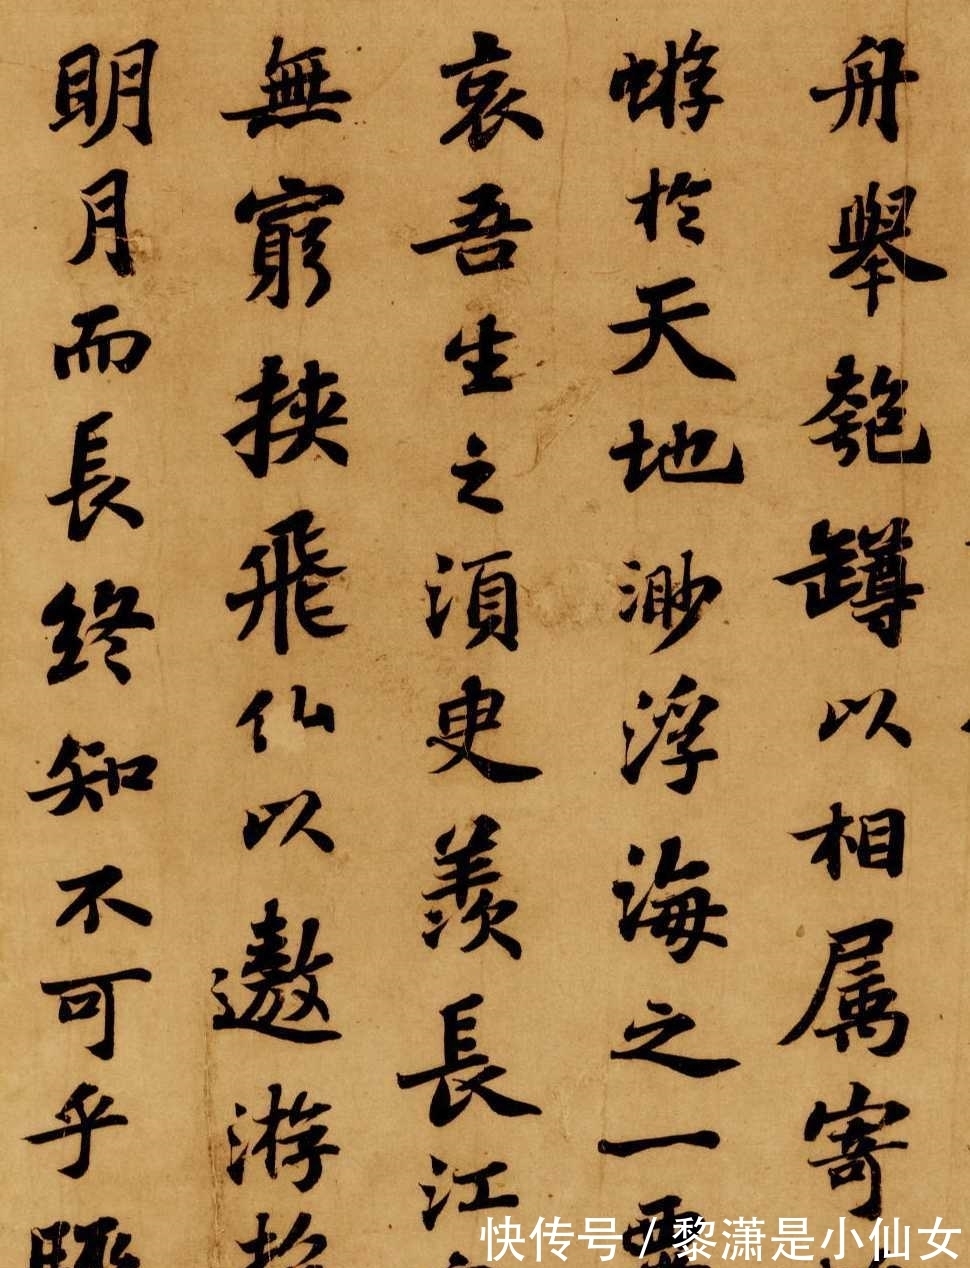 舟舉匏罇以相属寄
蝣於天地渺浮海之一
哀吾生之須臾羨長江
無窮挾飛仙以遨游
明月而長終知不可乎
快传号 / 黎潇是小仙女